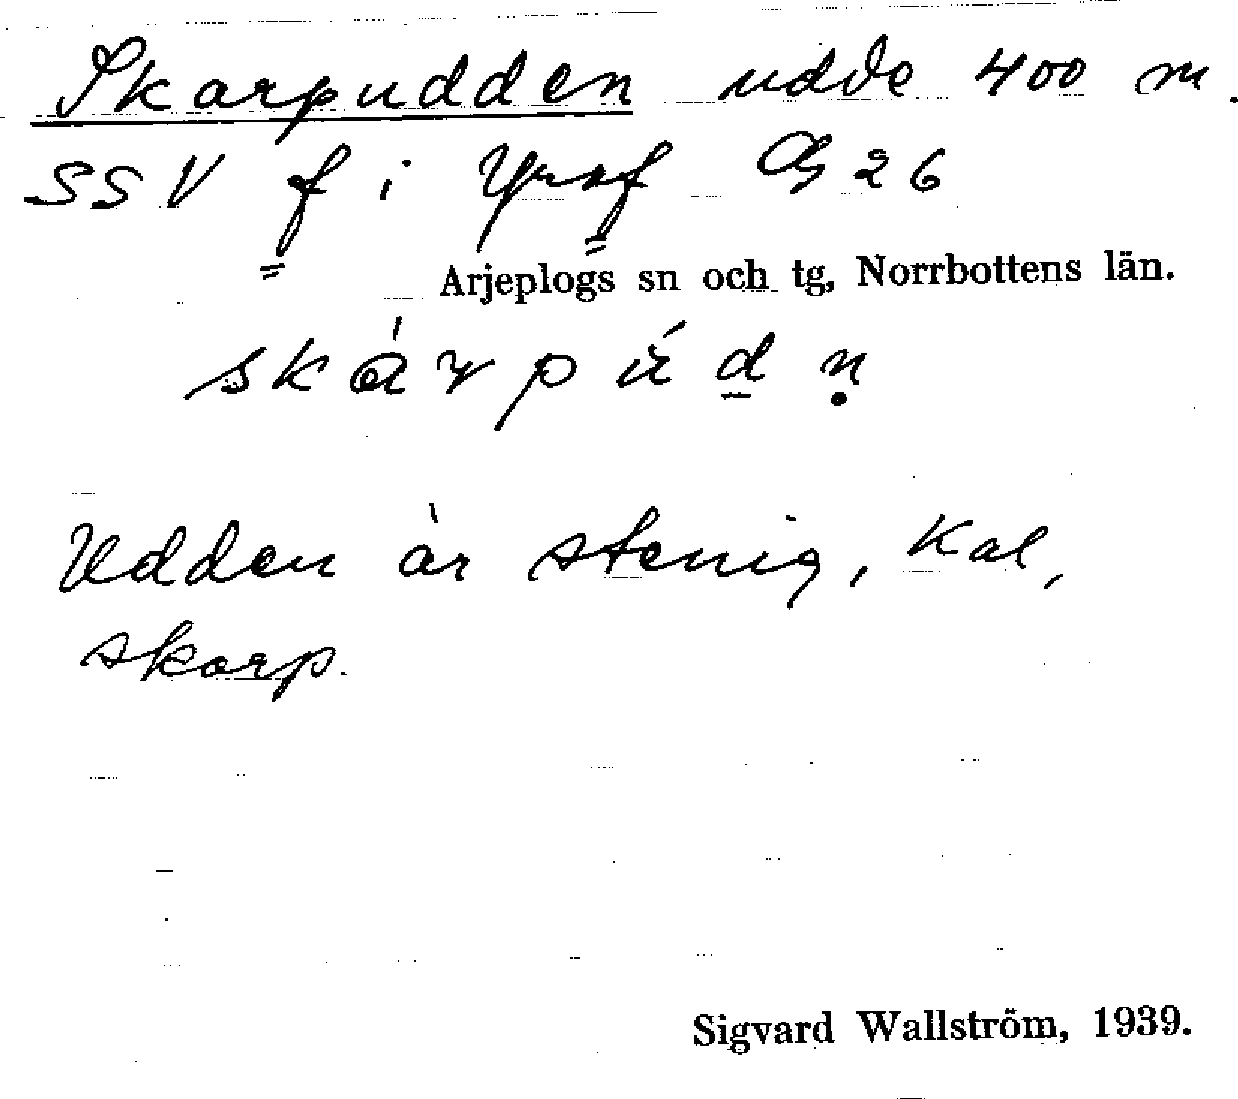 Skarpudden udde 400 m.
SSV f i Yraf 26
Arjeplogs sn och tg, Norrbottens län.
skárpúdn̥
Udden är stenig, kal,
skarp.
Sigvard Wallström, 1939.